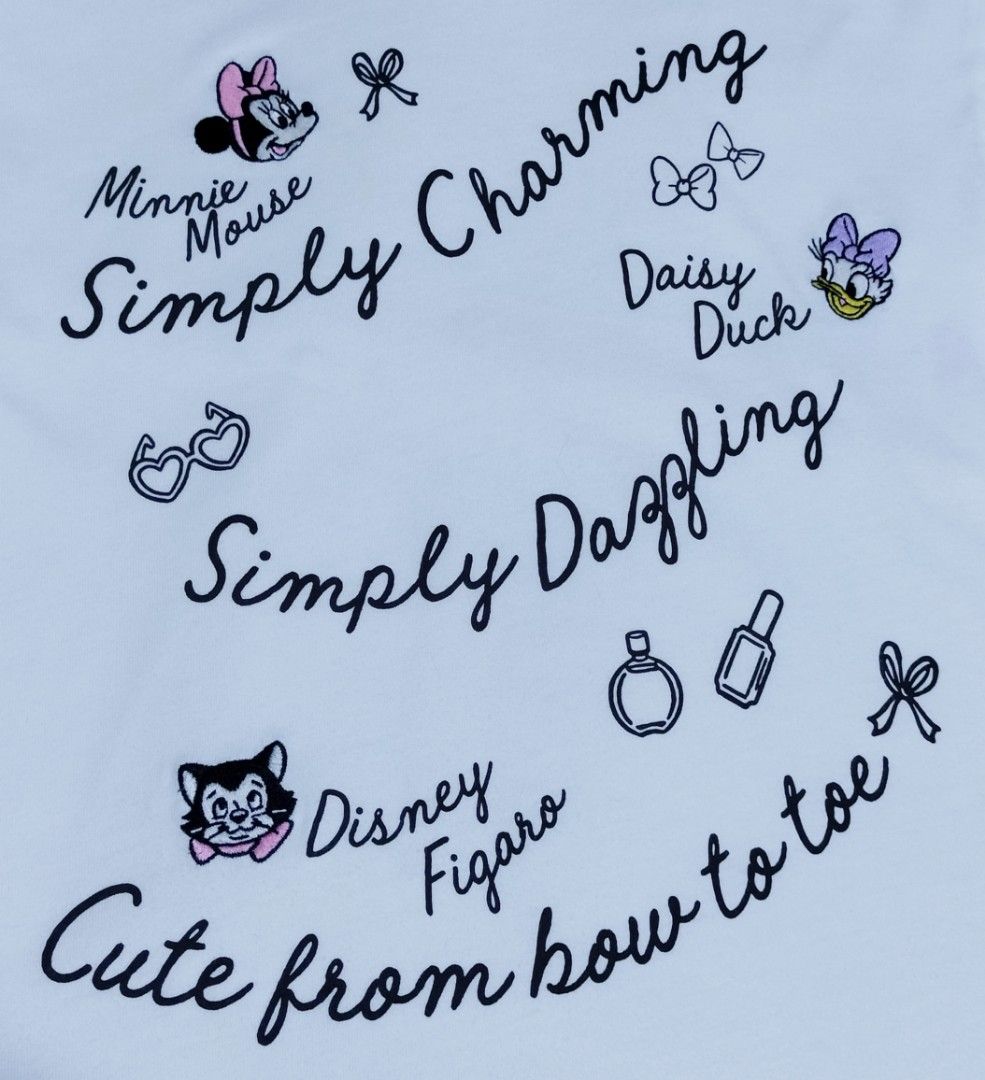 Minnie
Mouse
Simply Charming
Daisy
Duck
Simply Dazzling
Disney
Figaro
Cute from bow to toe